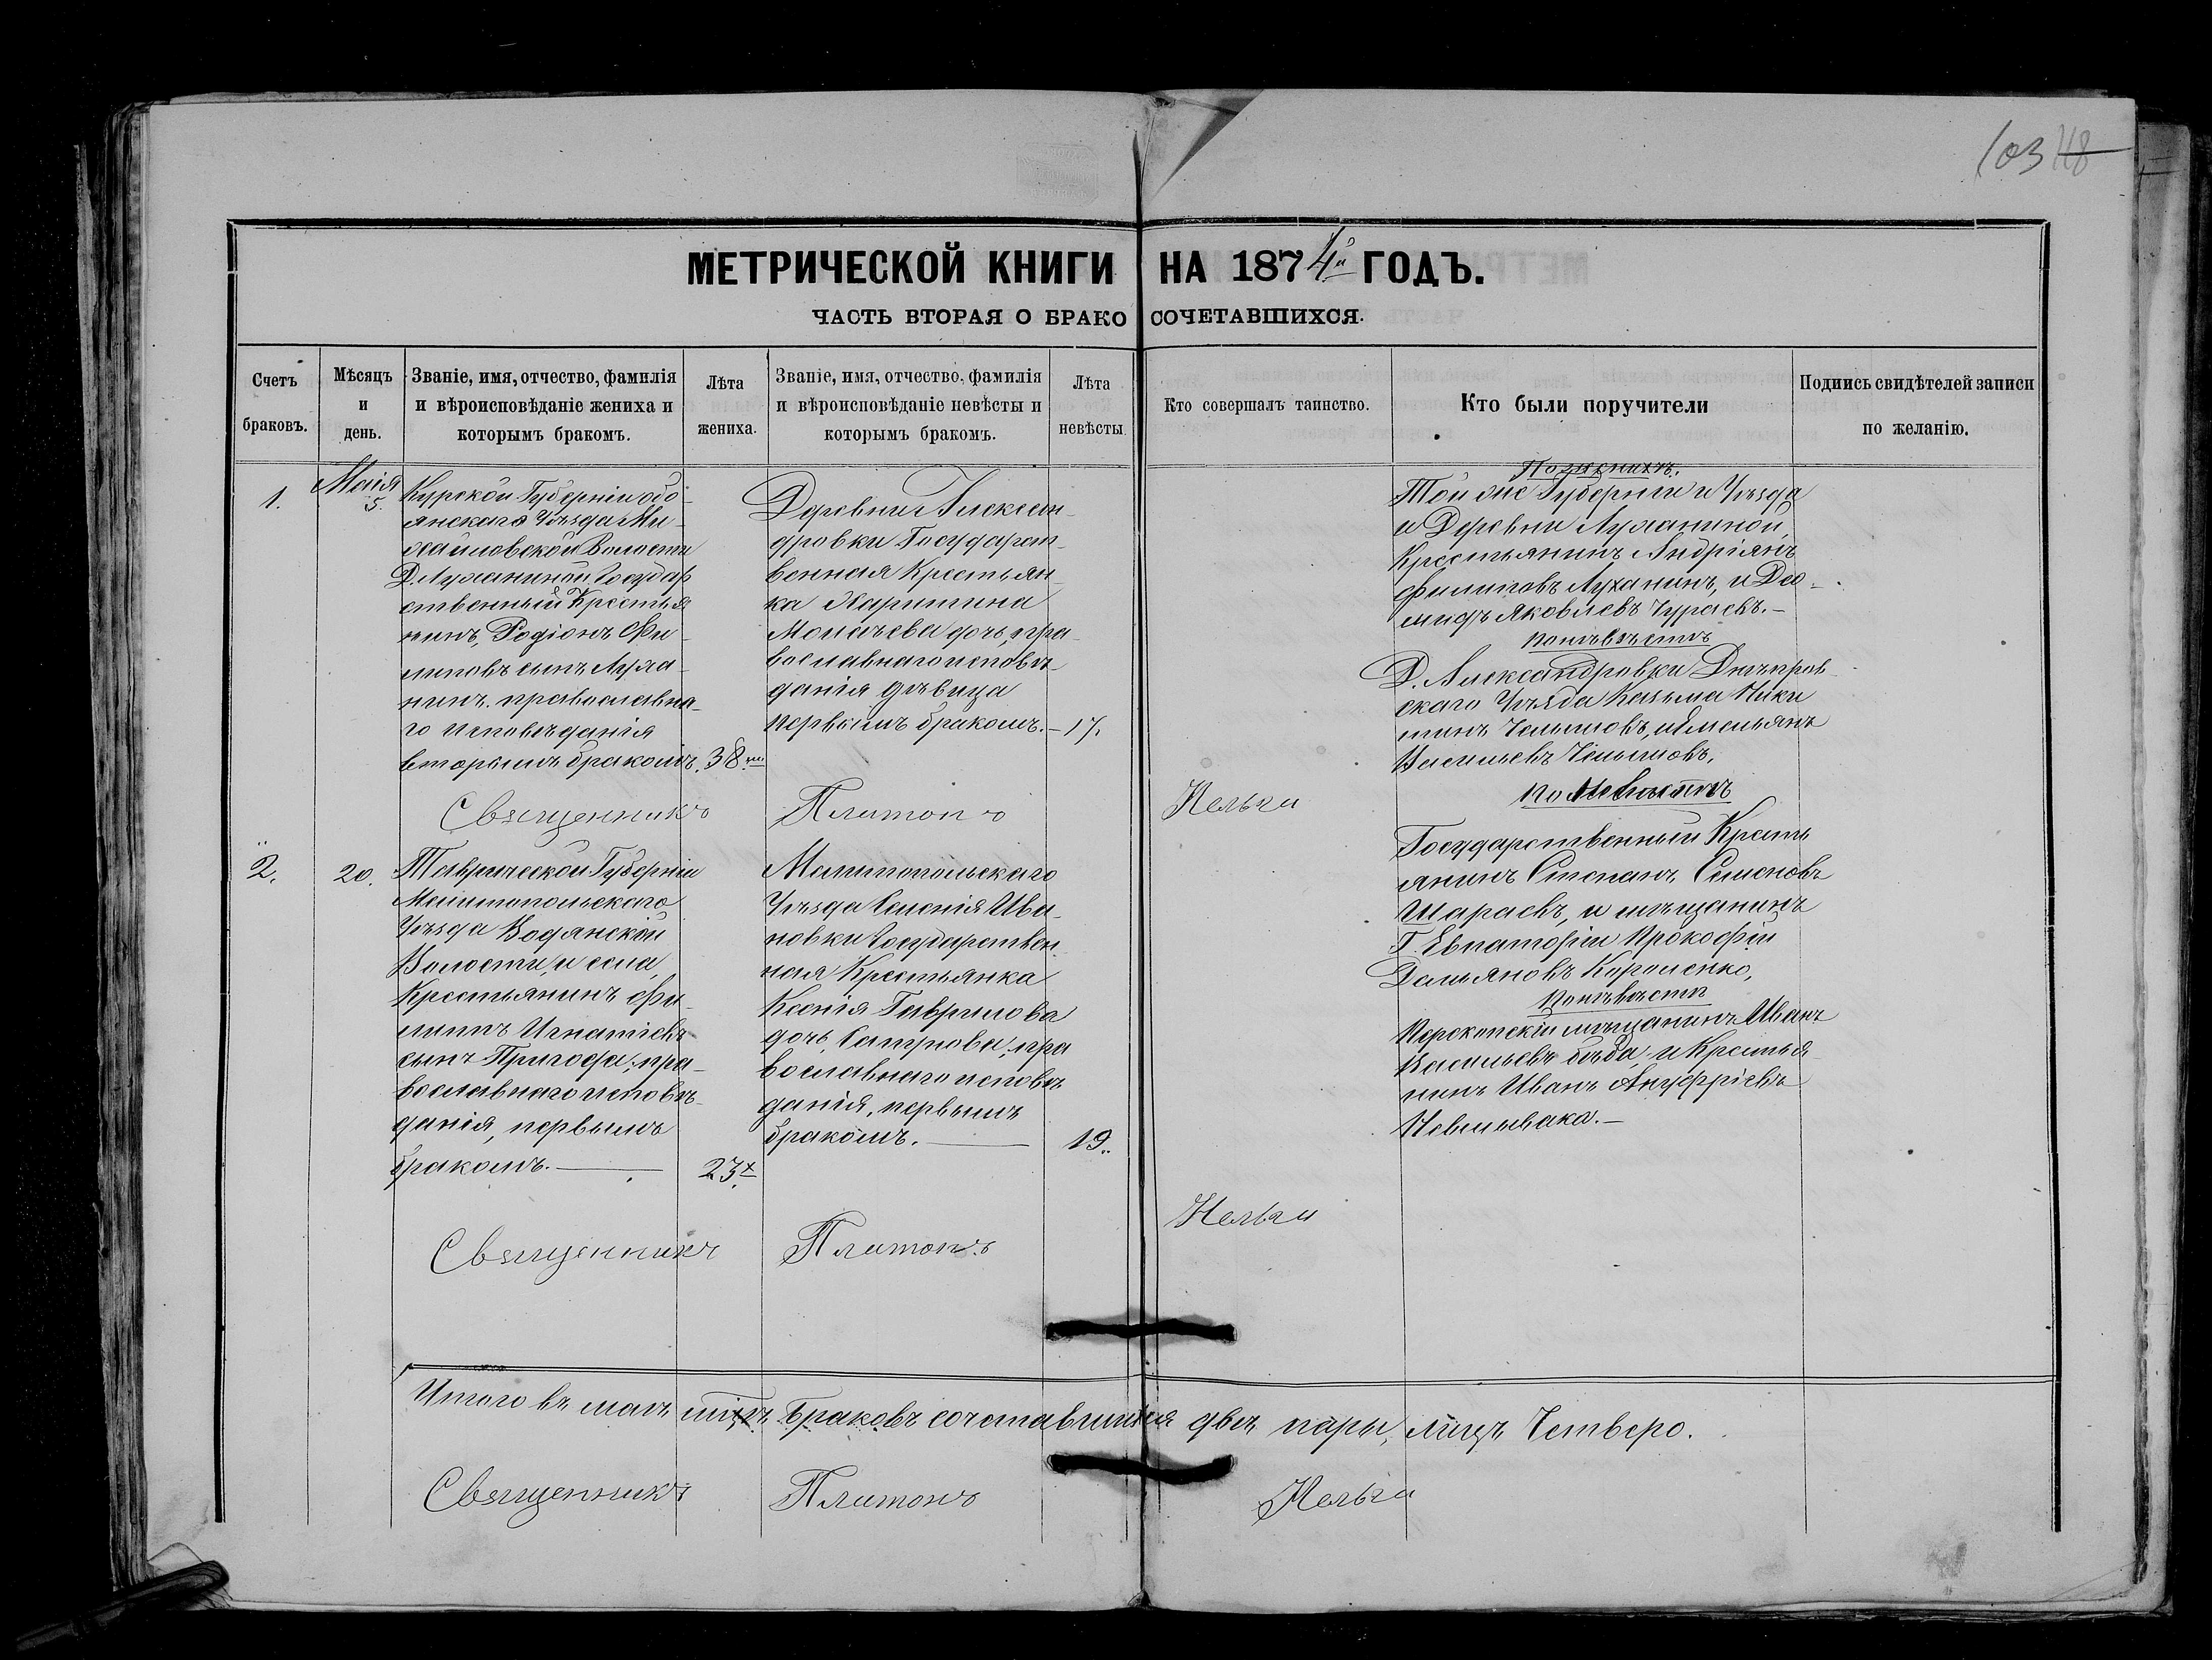 103 118
МЕТРИЧЕСКОЙ КНИГИ НА 1874й ГОДЪ.
ЧАСТЬ ВТОРАЯ О БРАКОСОЧЕТАВШИХСЯ.
Счетъ браковъ.
Мѣсяцъ и день.
Званіе, имя, отчество, фамилія и вѣроисповѣданіе жениха и которымъ бракомъ.
Лѣта жениха.
Званіе, имя, отчество, фамилія и вѣроисповѣданіе невѣсты и которымъ бракомъ.
Лѣта невѣсты
Кто совершалъ таинство.
Кто были поручители
Подпись свидѣтелей записи по желанію.
1.
Маія
5.
Курской Губерніи Обо-
янскаго Уѣзда Ми-
хайловской Волости
Д. Луханиной Государ
ственный Крестья
нинъ, Родіонъ Фи-
липовъ сынъ Луха-
нинъ. православна-
го исповѣданія
вторымъ бракомъ.
38
Деревни Алексан-
дровки Государст-
венная Крестьян-
ка Харитина
дочь, пра-
вославнаго исповѣ-
данія дѣвица
первымъ бракомъ.
17.
По женихѣ.
Той же Губерніи и Уѣзда
и Деревни Луханиной,
Крестьянинъ Андріянъ
Филиповъ Луханинъ, и Дио-
мидъ Яковлевъ Чураевъ.-
по невѣстѣ
Д. Александровки Днѣпров-
скаго Уѣзда Казьма Ники
тинъ и Емельянъ
Васильевъ
Священникъ Платонъ
2.
20.
Таврической Губерніи
Мелитопольскаго
Уѣзда Водянской
Волости, и села,
Крестьянинъ Фи-
липъ Игнатіевъ
сынъ Пригода, пра-
вославнаго исповѣ-
данія, первымъ
бракомъ.
23
Мелитопольскаго
Уѣзда Селенія Ива-
новки Государствен
ная Крестьянка
Ксенія Гаврилова
дочь, пра
вославнаго исповѣ
данія, первымъ
бракомъ.
19.
Государственный Кресть
янинъ Степанъ Семеновъ
Шараевъ, и мѣщанинъ
Г. Евпаторіи Прокофій
Демьяновъ Короленко,
по невѣстѣ
Перекопскій мѣщанинъ Иванъ
Васильевъ и Крестья-
нинъ Иванъ Ануфріевъ
Священникъ Платонъ
Итого въ маѣ мцѣ браковъ сочетавшихся двѣ пары, лицъ Четверо.
Священникъ Платонъ